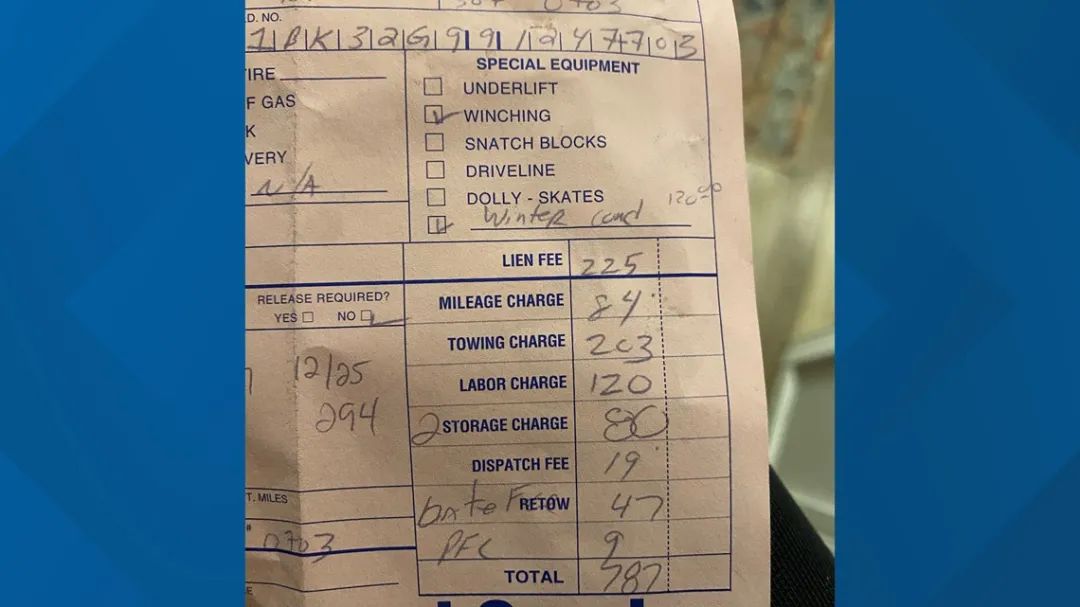 D. NO.
IRE
F GAS
K
VERY
N/A
SPECIAL EQUIPMENT
UNDERLIFT
WINCHING
SNATCH BLOCKS
DRIVELINE
DOLLY - SKATES 120.00
Winter cond
LIEN FEE 225
RELEASE REQUIRED?
YES NO
MILEAGE CHARGE 84
TOWING CHARGE 203
12/25
LABOR CHARGE 120
294
2 STORAGE CHARGE 80
DISPATCH FEE 19
T. MILES
Gate Fee RETOW 47
#
0703
PFC 9
TOTAL 787